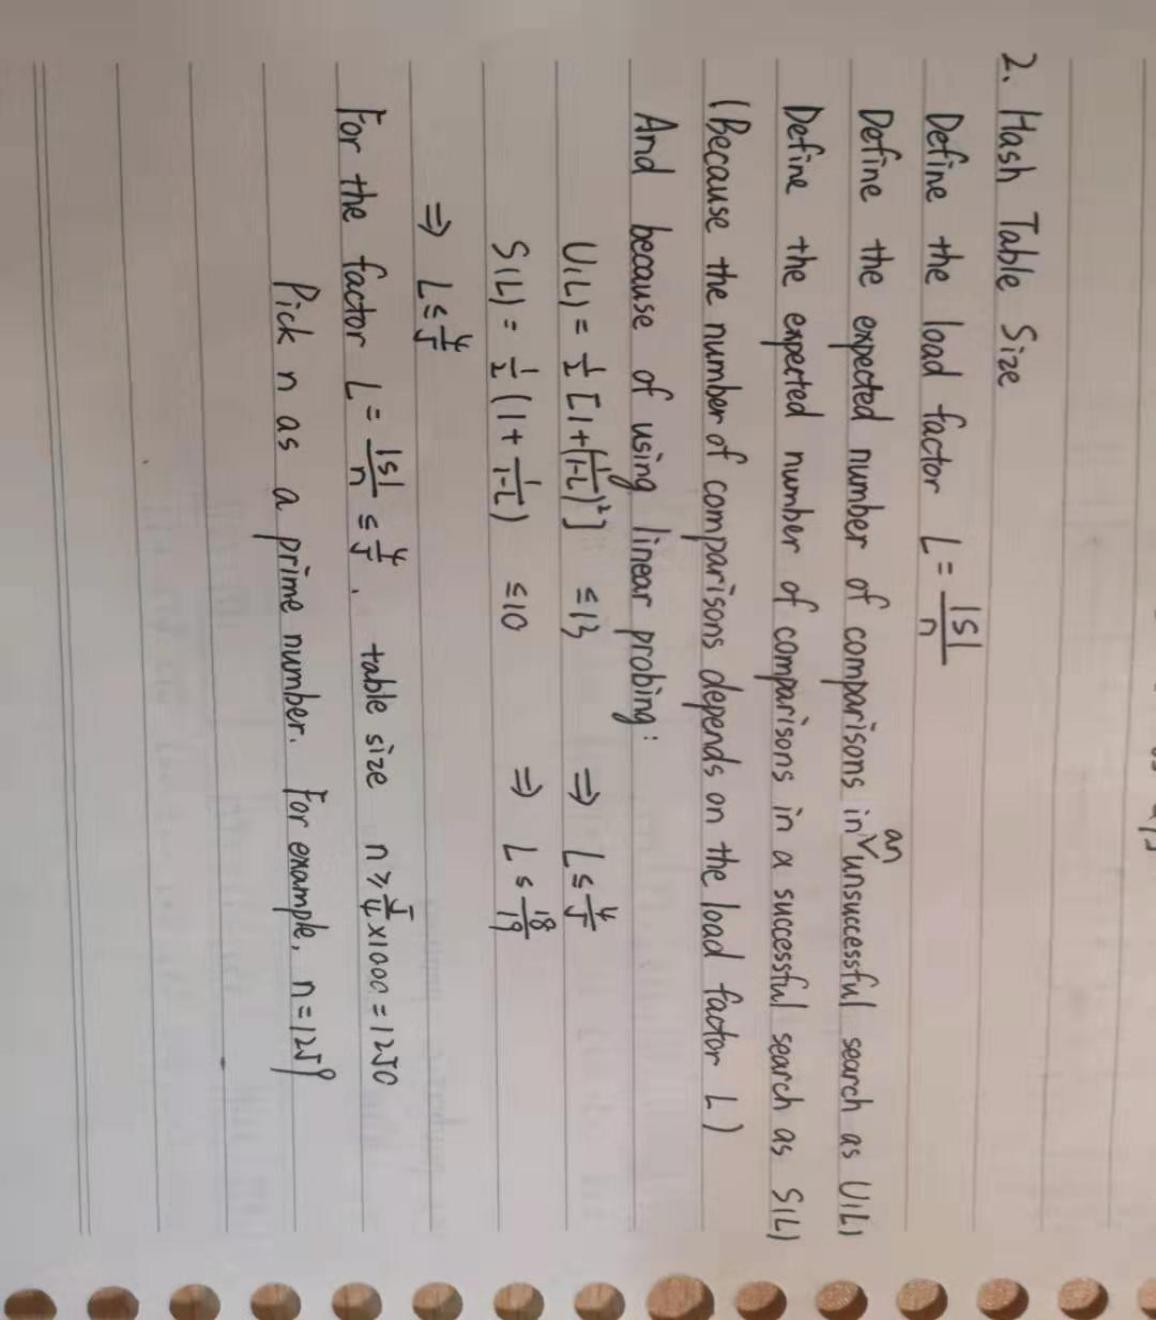 2. Hash Table Size
Define the load factor L = |S|/n
Define the expected number of comparisons in an unsuccessful search as U(L)
Define the experted number of comparisons in a successful search as S(L)
(Because the number of comparisons depends on the load factor L)
And because of using linear probing:
U(L) = 1/2 [1+(1/(1-L))²] ≤ 13 ⇒ L ≤ 4/5
S(L) = 1/2 (1 + 1/(1-L)) ≤ 10 ⇒ L ≤ 18/19
⇒ L ≤ 4/5
For the factor L = |S|/n ≤ 4/5. table size n ≥ 5/4 × 1000 = 1250
Pick n as a prime number. For example, n = 1259